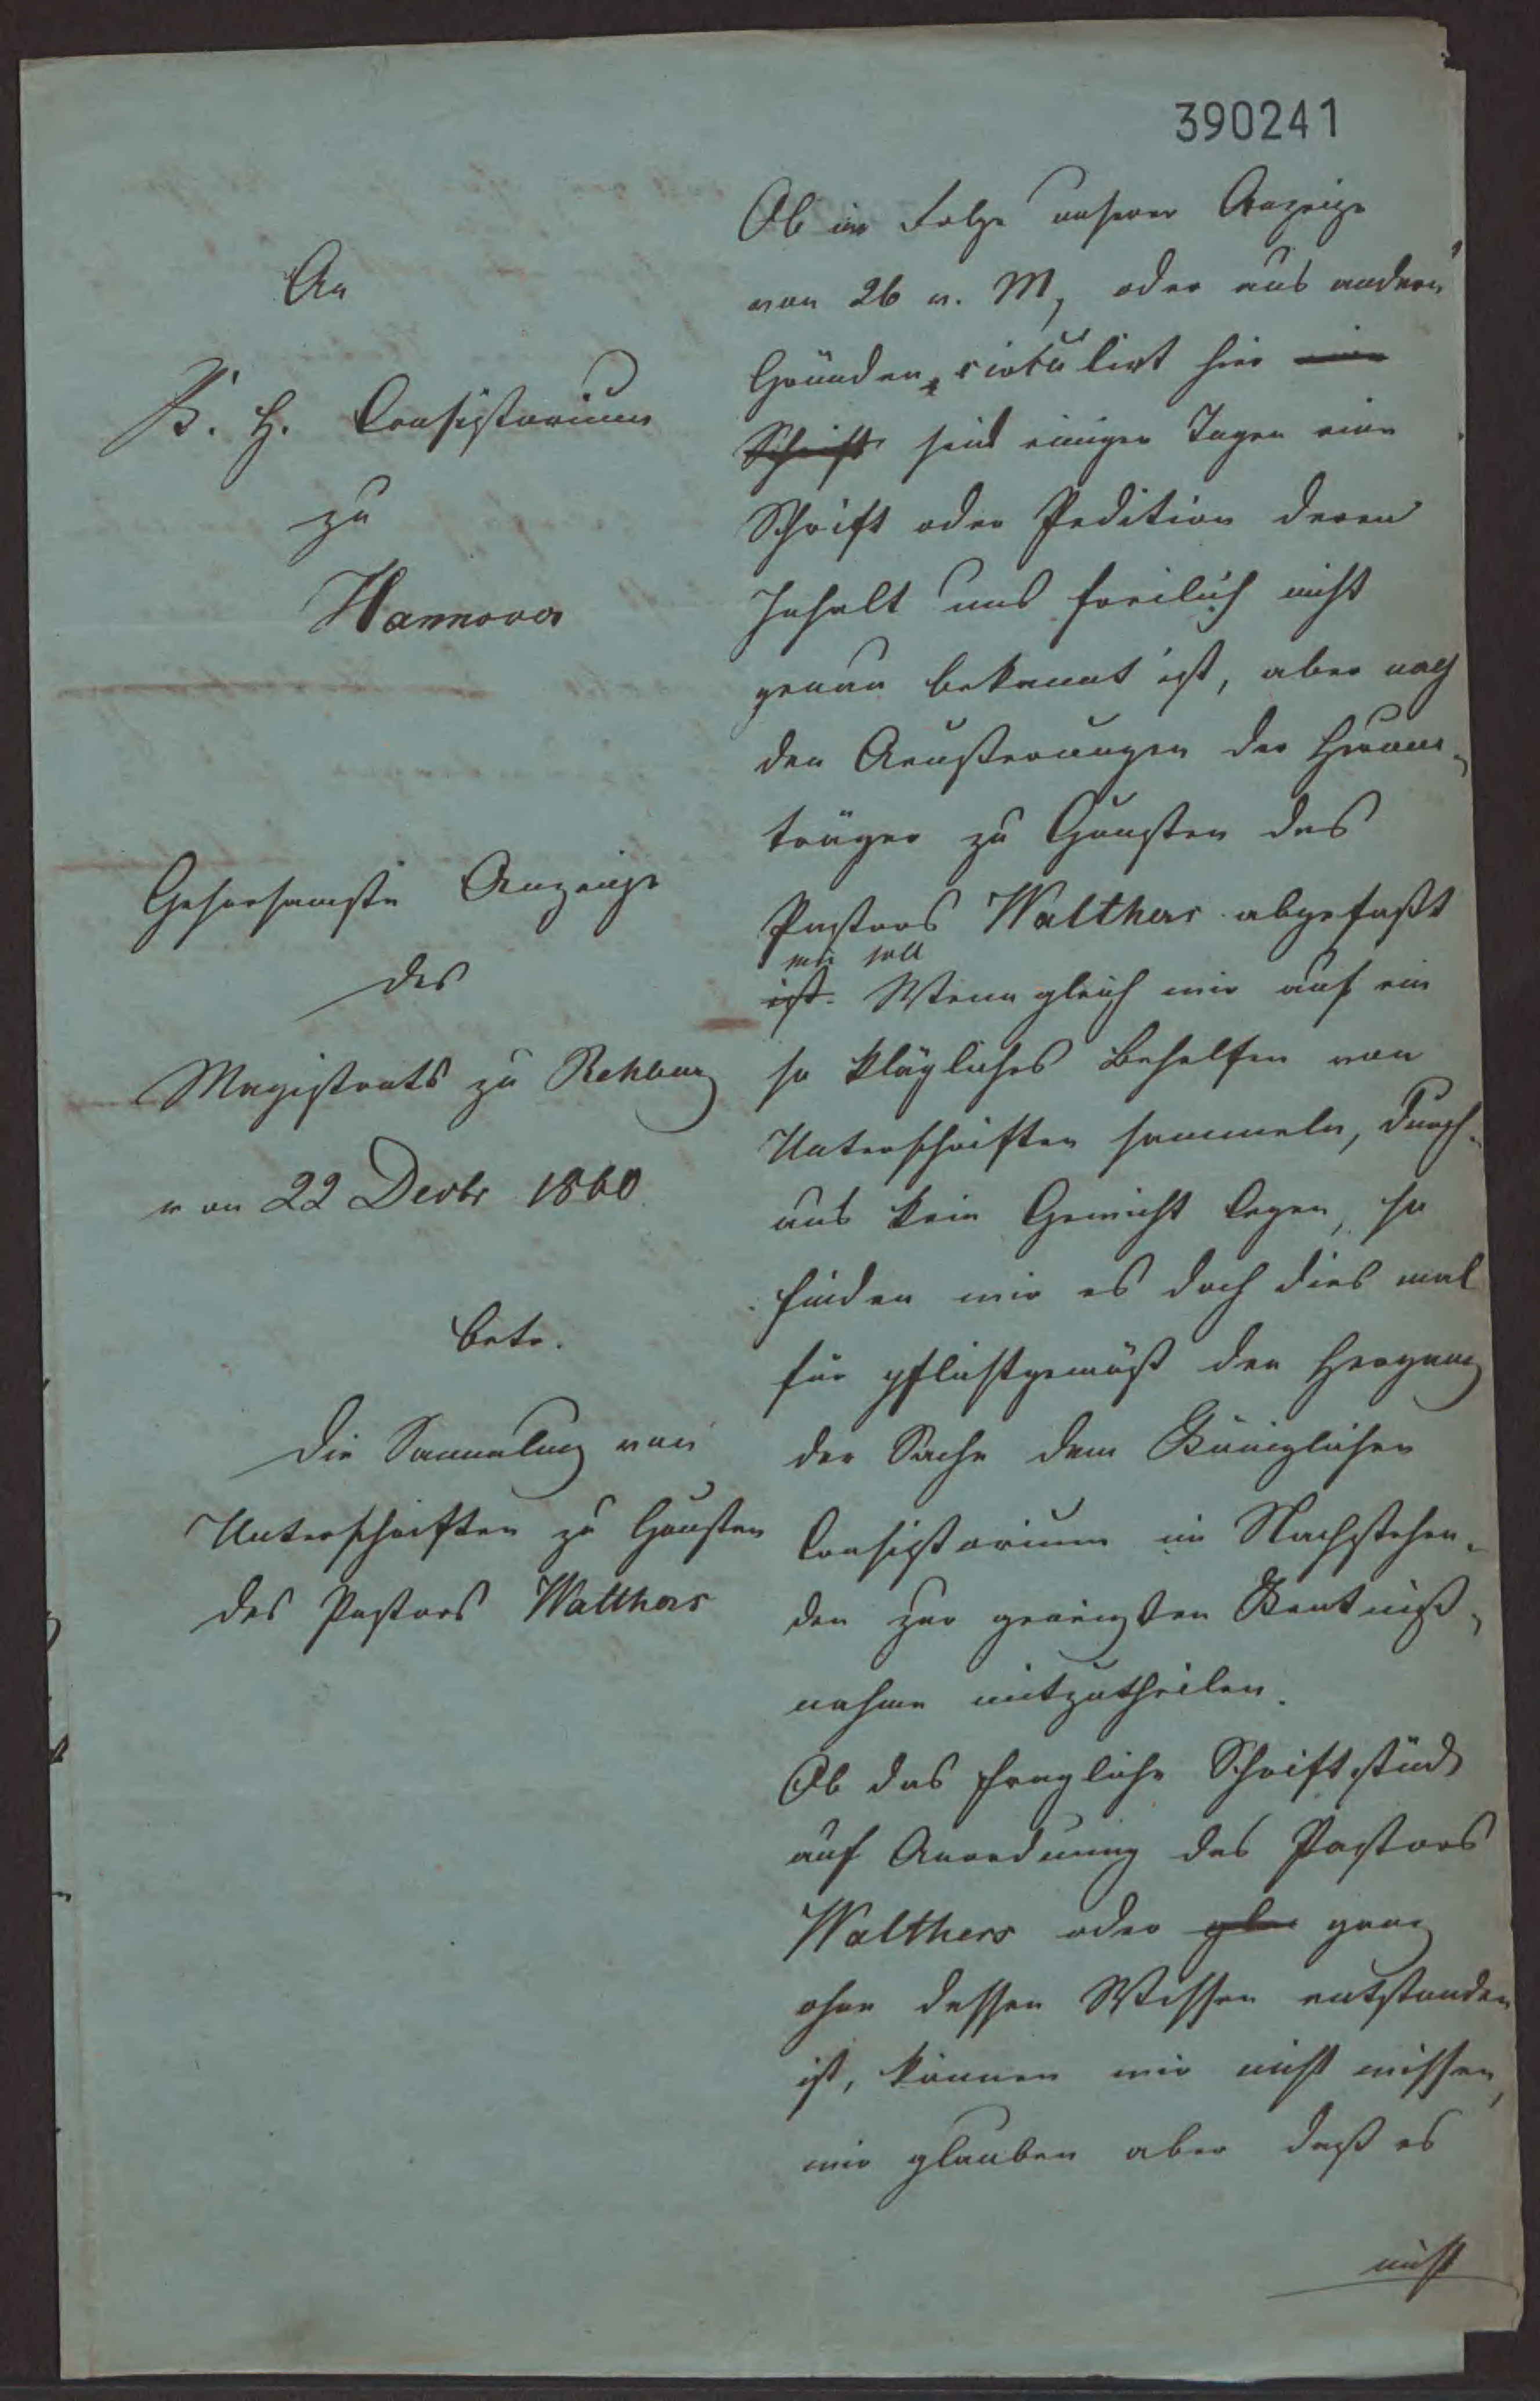 390241
An
K. H. Consistorium
zu
Hannover
Gehorsamste Anzeige
des
Magistrats zu Rehburg
von 22 Decbr 1860
betr.
die Sammlung von
Unterschriften zu Gunsten
des Pastors Walthers
Ob in Folge unserer Anzeige
von 26 v. M, oder aus andern
Gründen, cirkulirt hier eine
Schrift seit einigen Tagen eine
Schrift oder Pedition deren
Inhalt uns freilich nicht
genau bekannt ist, aber nach
den Aeußerungen der Herum-
träger zu Gunsten des
Pastors Walthers abgefaßt
sein soll
ist. Wenn gleich wir auf ein
so klägliches Behelfen von
Unterschriften sammeln, durch-
aus kein Gewicht legen, so
finden wir es doch dies mal
für pflichtgemäß den Hergang
der Sache dem Königlichen
Consistorium im Nachstehen-
den zur geneigten Kentniß-
nahme mitzutheilen.
Ob das fragliche Schriftstück
auf Anordnung des Pastors
Walthers oder ganz
ohne dessen Wissen entstanden
ist, können wir nicht wissen,
wir glauben aber daß es
nicht